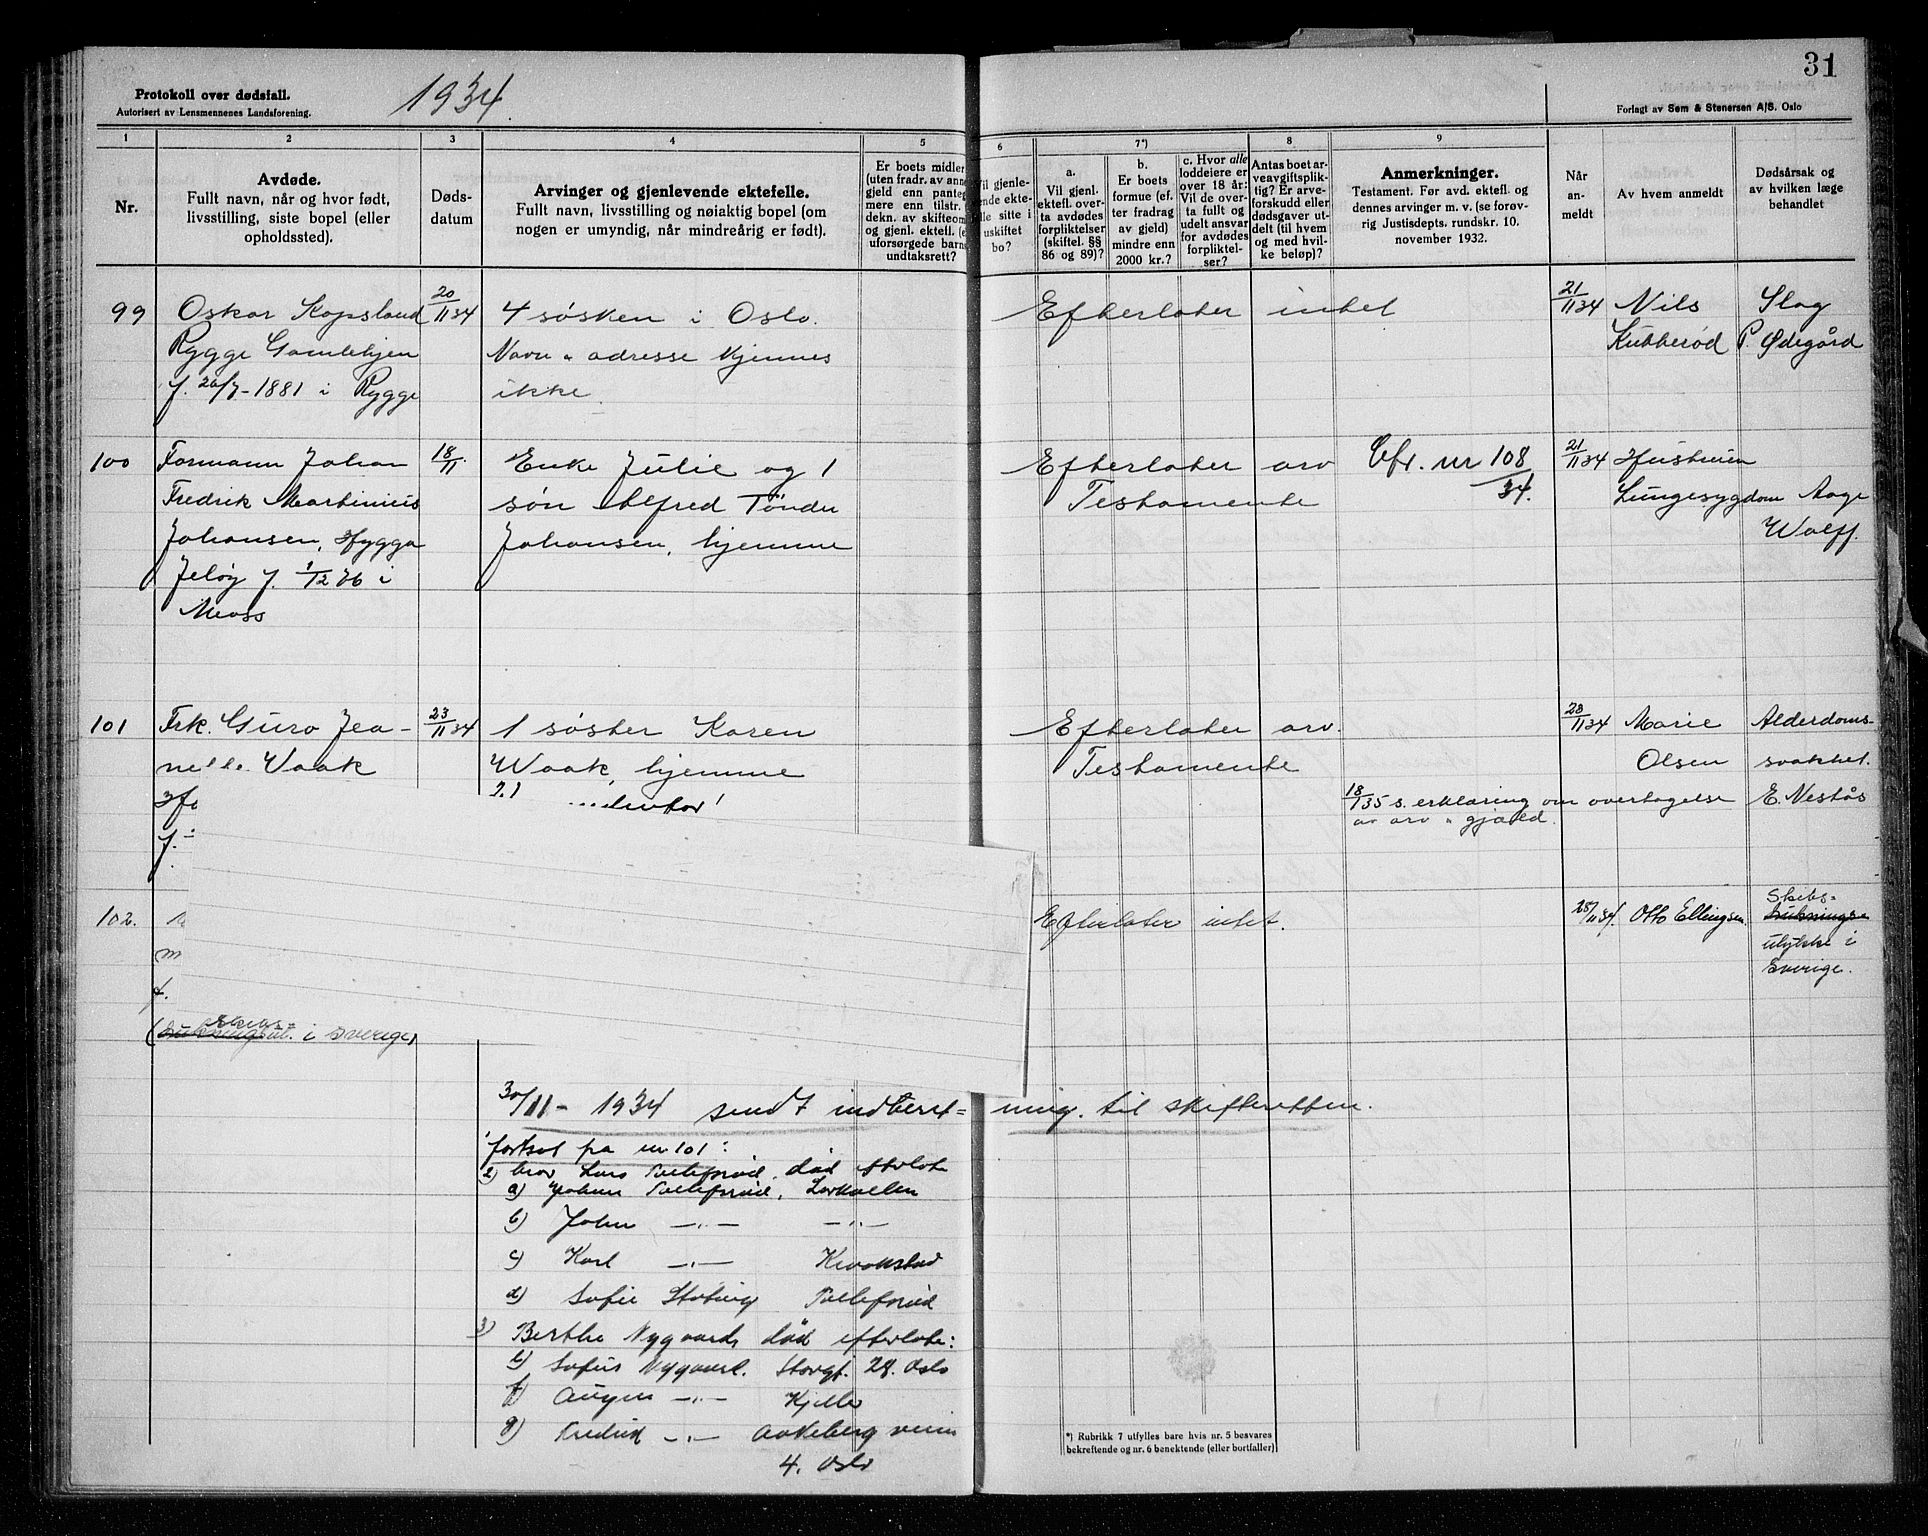 31
Protokoll over dødsfall.
Autorisert av Lensmennenes Landsforening.
1934.
Forlagt av Sem & Stenersen A/S. Oslo
1 2 3 4 5 6 7*) 8 9
Nr.
Avdøde.
Fullt navn, når og hvor født,
livsstilling, siste bopel (eller
opholdssted).
Døds-
datum
Arvinger og gjenlevende ektefelle.
Fullt navn, livsstilling og nøiaktig bopel (om
nogen er umyndig, når mindreårig er født).
Er boets midler
(uten fradr. av anne
gjeld enn panteg
mere enn tilstr.
dekn. av skifteom
og gjenl. ektef. (e
uforsørgede barns
undtaksrett?
Vil gjenle-
nde ekte-
lle sitte i
uskiftet
bo?
a.
Vil gjenl.
ektef. over-
ta avdødes
forpliktelser
(skiftel. §§
86 og 89)?
b.
Er boets
formue (ef-
ter fradrag
av gjeld)
mindre enn
2000 kr.?
c. Hvor alle
loddeiere er
over 18 år:
Vil de over-
ta fullt og
udelt ansvar
for avdødes
forpliktel-
ser?
Antas boet ar-
veavgiftsplik-
tig? Er arve-
forskudd eller
dødsgaver ut-
delt (til hvem
og med hvil-
ke beløp)?
Anmerkninger.
Testament. Før avd. ektefl. og
dennes arvinger m. v. (se forøv-
rig Justisdepts. rundskr. 10.
november 1932.
Når
an-
meldt
Av hvem anmeldt
Dødsårsak og
av hvilken læge
behandlet
99 Oskar Kopsland 20/11 34 4 søsken i Oslo. Efterlater intet 21/11 34 Nils Slag
Rygge Gamlehjem Navn & adresse kjennes Kubberød P. Ødegård
f. 26/7-1881 i Rygge ikke.
100 Formann Johan 18/11 Enke Julie og 1 Efterlater arv Cfr. nr 108/34. 21/11 34 Hustruen
Fredrik Martinius søn Alfred Tønder Testamente Lungesygdom Aage
Johansen, Hygga Johansen, hjemme Wolff.
Jeløy f. 1/12 76 i
Moss
101 Frk. Guro Jea- 23/11 34 1 søster Karen Efterlater arv. 28/11 34 Marie Alderdoms-
nette Vaak Waak, hjemme Testamente Olsen svakhet.
2.1 18/1 35 s. erklæring om overtagelse E. Nestås
av arv & gjæld.
f.
102. Efterlater intet. 28/11 34. Otto Ellingsen. Skibs-
drukningsu
m ulykke i
f. Sverige.
Skibs-
(drukningsul. i Sverige)
30/11 - 1934 sendt indberet- ning. til skifteretten.
fortsat fra nr 101:
2) bror Lars Tollefsrød, død efterlate
a) Johan Tollefsrød, Larkollen
b) John —"— —"—
c) Karl —"— Krokstad
d) Sofie Støtvig Tollefsrød
3) Berthe Nygaard, død efterlate:
e) Sofus Nygaard. Storgt. 28. Oslo
f) —"— Kjeller
g) Fredrik —"— Aakeberg veien
4. Oslo
*) Rubrikk 7 utfylles bare hvis nr. 5 besvares
bekreftende og nr. 6 benektende (eller bortfaller)